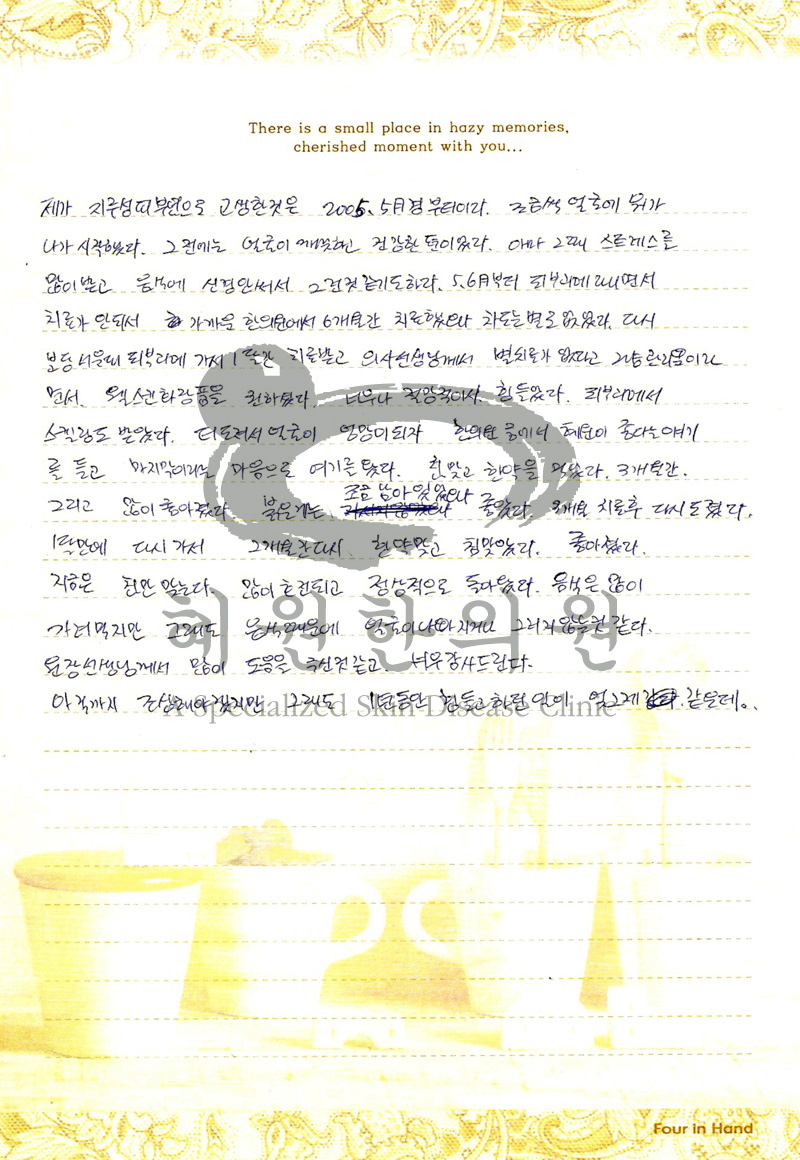 There is a small place in hazy memories,
cherished moment with you...
제가 지루성피부염으로 고생한것은 2005. 5月경부터이다. 조금씩 얼굴에 뭐가
나기 시작했다. 그전에는 얼굴이 깨끗하고 건강한 톤이었다. 아마 그때 스트레스를
많이받고 음식에 신경안써서 그런것 같기도하다. 5.6月부터 피부과에 다니면서
치료가 안되서 가까운 한의원에서 6개월간 치료했으나 차도는 별로 없었다. 다시
분당서울대 피부과에 가서 1달간 치료받고 의사선생님께서 별치료가 없다고 그냥 관리뿐이라
면서. 화장품을 권하셨다. 너무나 절망적이서. 힘들었다. 피부과에서
스켈링도 받았다. 더도져서 얼굴이 엉망이되자 한의원 중에서 혜원이 좋다는얘기
를 듣고 마지막이라는 마음으로 여기를 왔다. 침맞고 한약을 먹었다. 3개월간.
그리고 많이 좋아졌다. 붉은기는 조금 남아 있었으나 좋았다. 3개월 치료후 다시 도졌다.
1달만에 다시 가서 2개월간 다시 한약먹고 침맞았다. 좋아졌다.
지금은 한약 않는다. 많이 호전되고 정상적으로 돌아왔다. 음식은 많이
가려먹지만 그래도 음식때문에 얼굴이 나빠지거나 그러지 않을것 같다.
원장선생님께서 많이 도움을 주신것 같고. 너무 감사드린다.
아직까지 조심해야겠지만 그래도 1년동안 힘들고 하던 일이 엊그제 같은데..
혜원한의원
A Specialized Skin Disease Clinic
Four in Hand